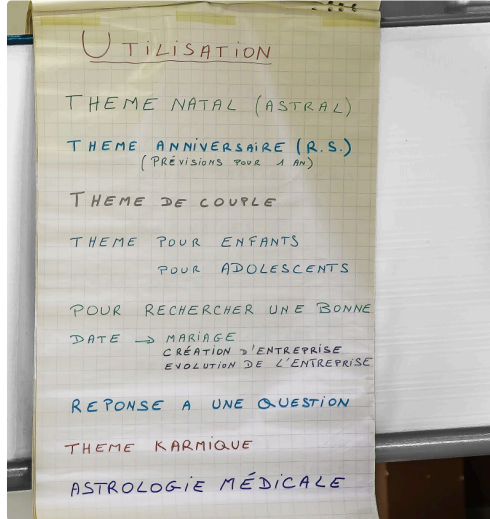 UTILISATION
THEME NATAL (ASTRAL)
THEME ANNIVERSAIRE (R.S.)
(PRÉVISIONS POUR 1 AN)
THEME DE COUPLE
THEME POUR ENFANTS
POUR ADOLESCENTS
POUR RECHERCHER UNE BONNE
DATE → MARIAGE
CRÉATION D'ENTREPRISE
EVOLUTION DE L'ENTREPRISE
REPONSE A UNE QUESTION
THEME KARMIQUE
ASTROLOGIE MÉDICALE